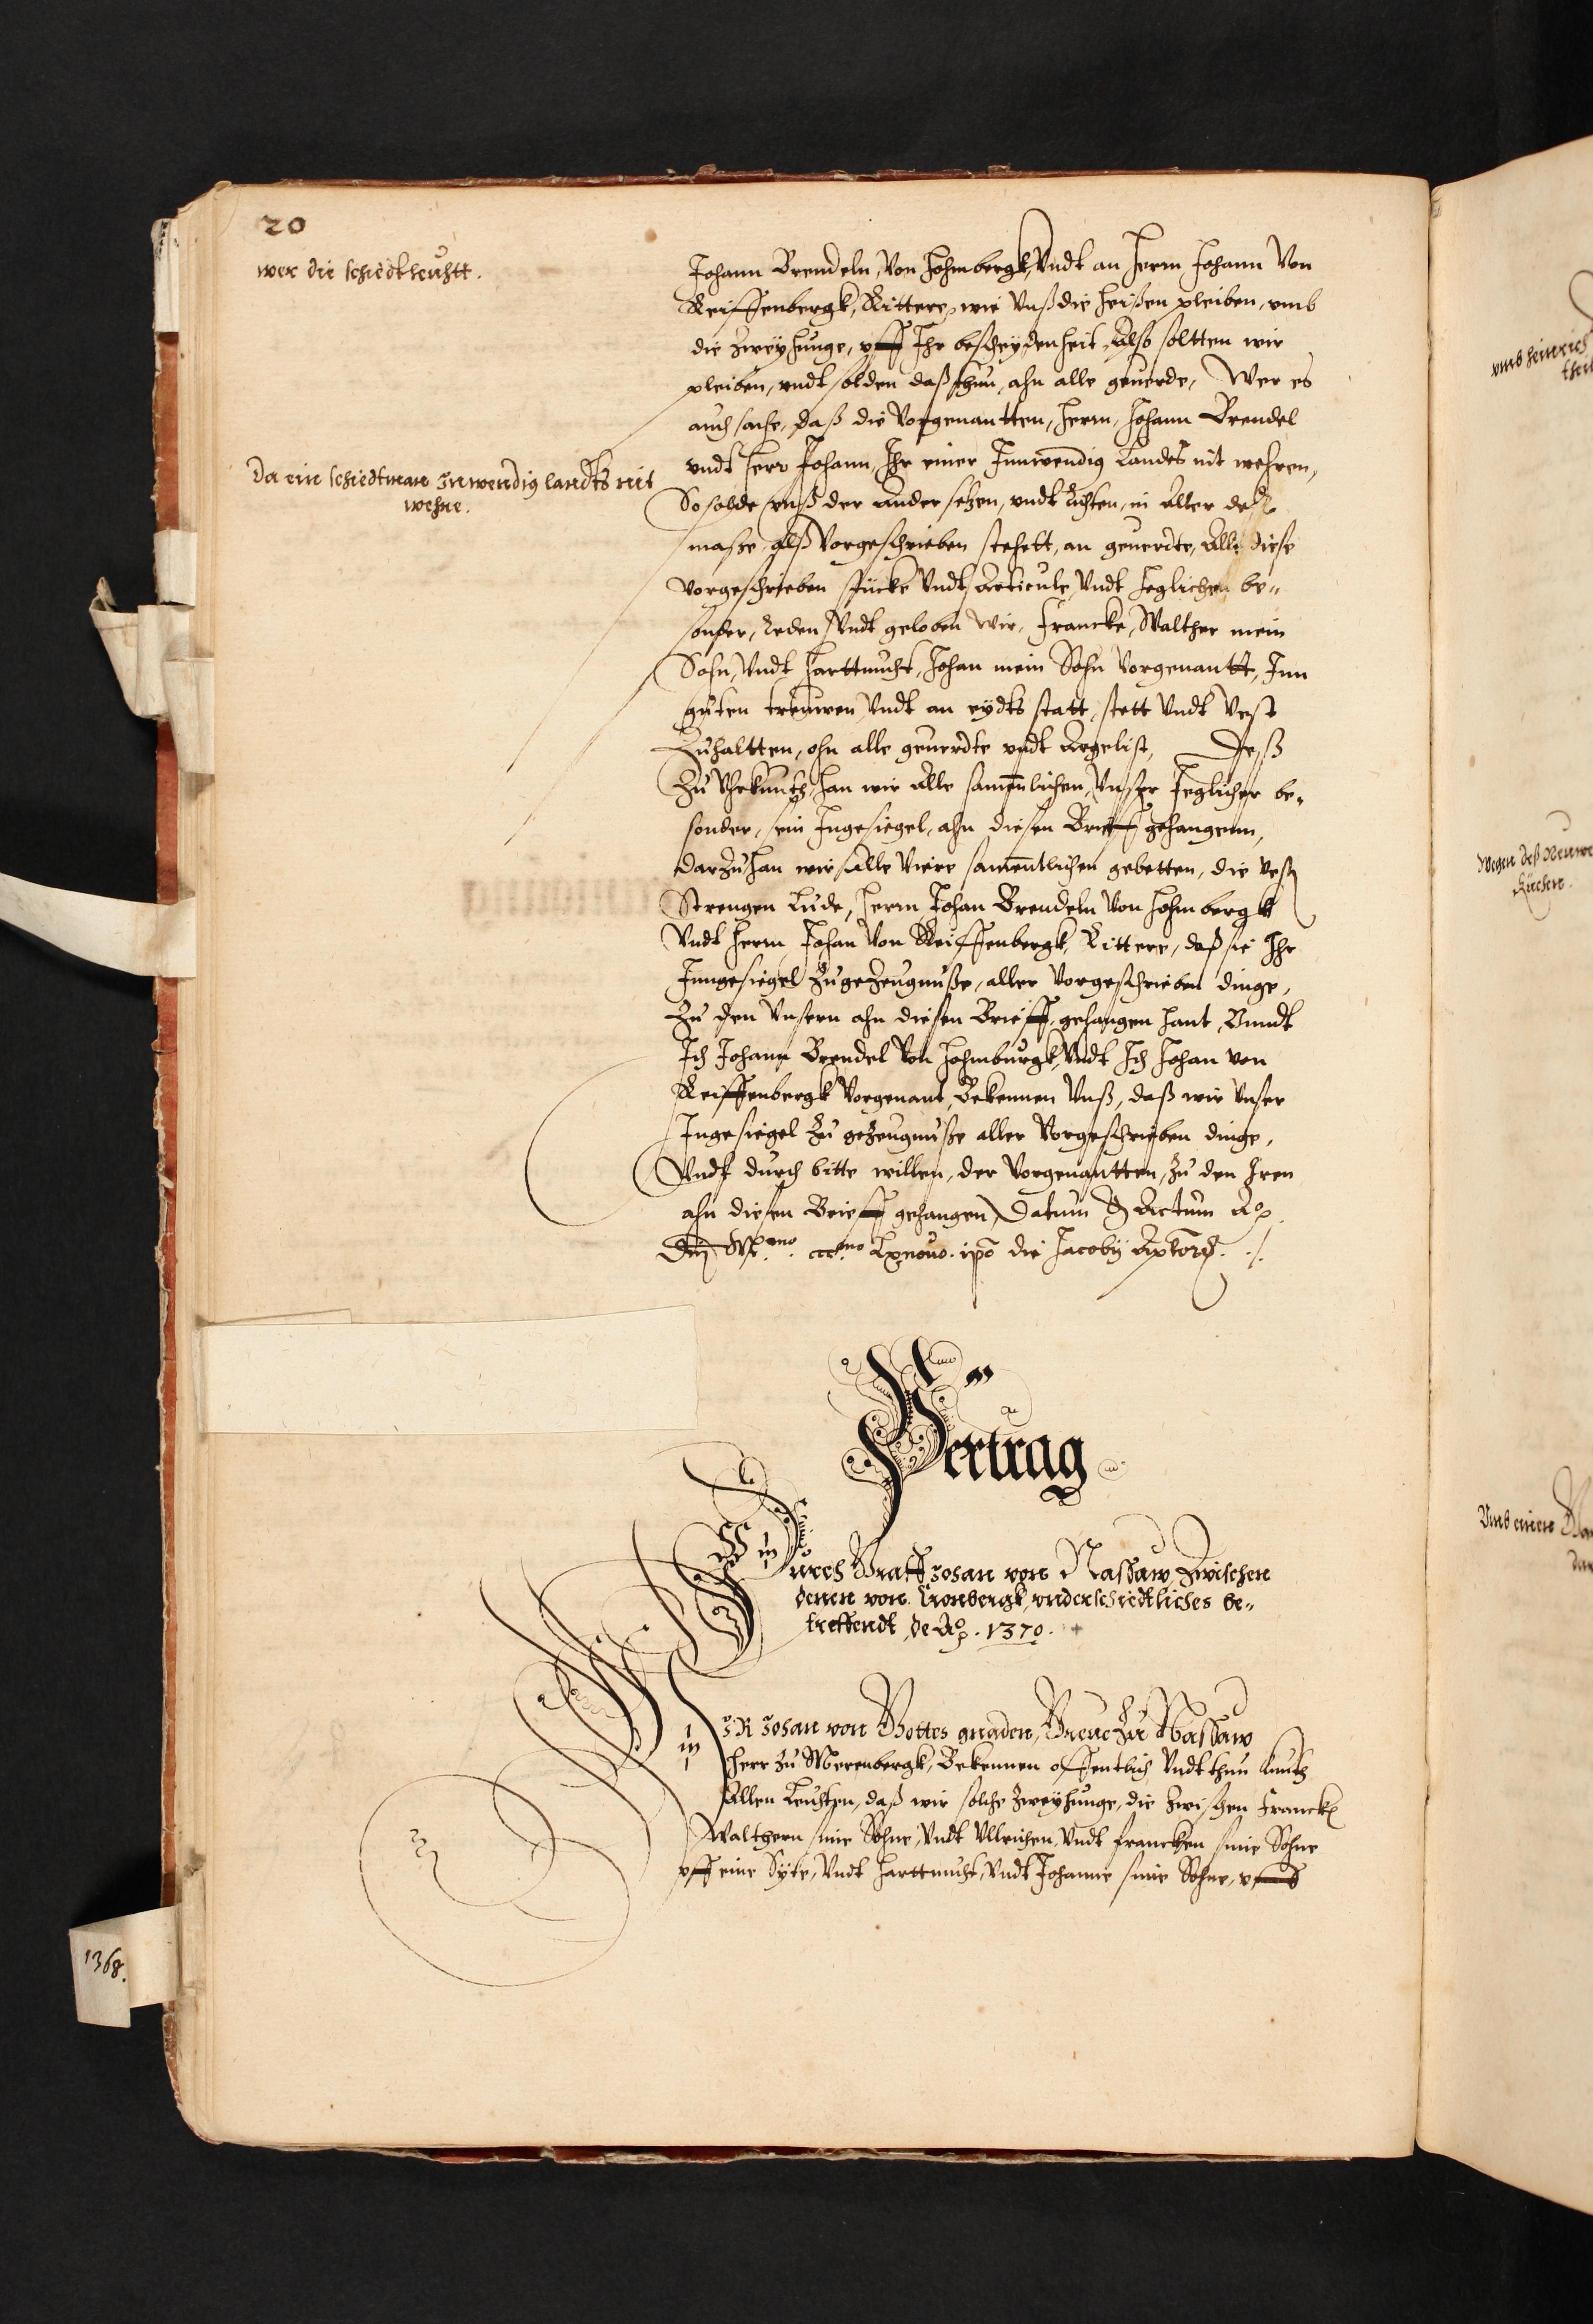 20
wer die schiedtleuhtt.
Johann Brendeln, Von Hohmbergk, Vndt an Herrn Johann Von
Reiffenbergk, Rittere, wie Vnß die heißen pleiben, vmb
die Zweyhunge, vff Ihr bescheydenheit, Also soltten wir
pleiben, vndt solden daß thun, ahn alle geuerde, Wer es
auch sache, daß die Vorgenantten, Herrn, Johann Brendel
vndt Herr Johann, Ihr einer Innwendig Landes nit wehren,
Da ein schiedtman Inwendig landts nit
wehre.
So solde vnß der Ander setzen, vndt Richten, in Aller der
masse, alß Vorgeschrieben stehett, an geuerdte, Alle diese
vorgeschrieben stücke Vndt Articule, Vndt Jeglichen be„
sonder, Reden Vndt geloben Wir, Francke, Walther mein
Sohn, Vndt Harttmuht, Johan mein Sohn Vorgenantt, Inn
guten treuwen, Vndt an eydts statt, stett Vndt Vest
Zuhaltten, ohn alle geuerdte vndt Argelist, Deß
Zu Vhrkunth, han wir Alle samentlichen, Vnser Jeglicher be„
sonder, sein Ingesiegel, ahn diesen Brieff gehangenn,
darzu han wir Alle Viere samentlichen gebetten, die Vest
Strengen Lude, Herrn Johan Brendeln Von Hohmbergk
Vndt Herrn Johan Von Reiffenbergk, Rittere, daß sie Ihr
Inngesiegel Zu gezeugnuße, aller Vorgeschrieben dinge,
Zu den Vnsern ahn diesen Brieff, gehangen hant, Vnndt
Ich Johann Brendel Von Hohmburgk, Vndt Ich Johan von
Reiffenbergk Vorgenant, Bekennen Vnß, daß wir Vnser
Ingesiegel Zu gezeugnuße aller Vorgeschrieben dinge,
Vndt durch bitte willen, der Vorgenantten, Zu den Iren
ahn diesen Brieff gehangen, Datum & Actum Ao
Dni M.mo ccc.mo Lxnouo. ipo die Jacobij Aptoris. ./.
Vertrag
Durch Graff Johan von Nassaw, Zwischen
denen von Cronbergk, vnderschiedtliches be„
treffendt, de Ao. 1370.
WIR Johan von Gottes gnaden, Graue Zu Nassaw
Herr Zu Merenbergk, Bekennen offentlich, Vndt thun kunth
Allen Leuhten, daß wir solche Zweyhunge, die Zwischen Francken
Walthern sine Sohne, Vndt Vllrichen, Vndt francken sine Sohne
vff eine Syte, Vndt Harttmuht, Vndt Johanne sine Sohne, vff
1368.
vmb heinrich
Wegen deß Neuwe
Kuchen.
Vmb einen